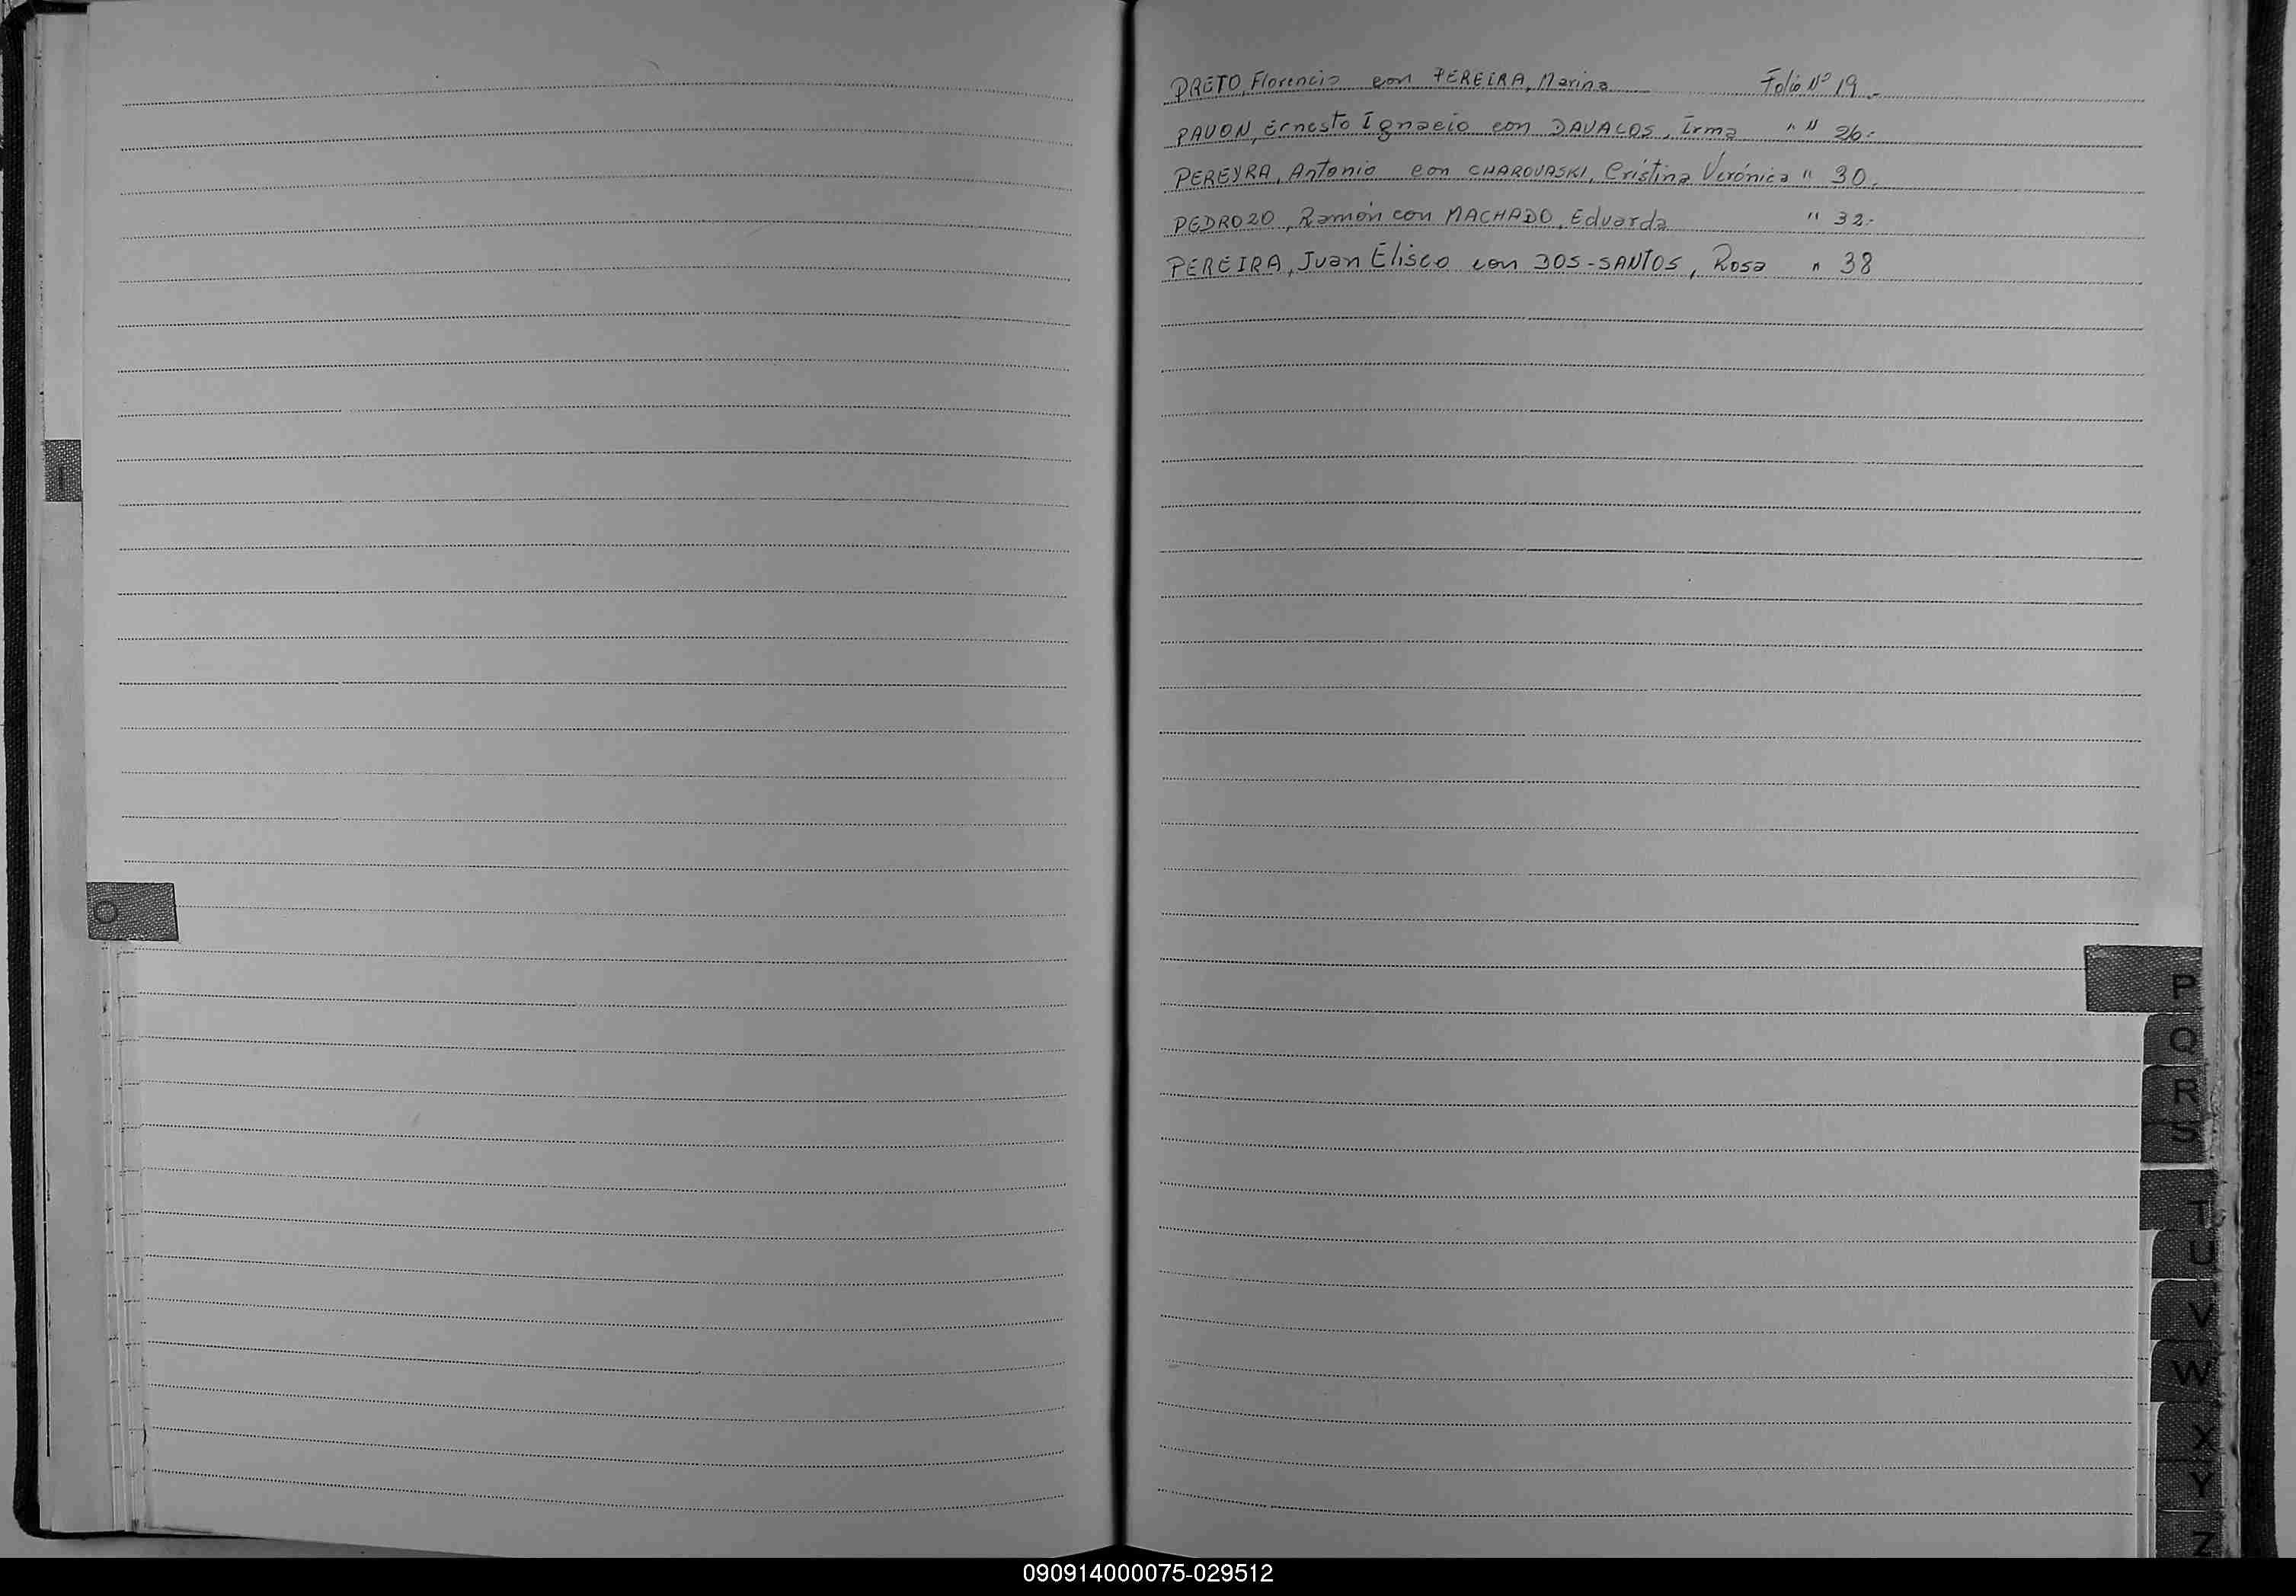 PRETO, Florencio con PEREIRA, Marina Folio Nº 19.-
PAVON, Ernesto Ignacio con DAVALOS, Irma " " 26.-
PEREYRA, Antonio con CHAROVASKI, Cristina Verónica " 30.
PEDROZO, Ramón con MACHADO, Eduarda " 32.-
PEREIRA, Juan Eliseo con DOS-SANTOS, Rosa " 38
I
O
P
Q
R
S
T
U
V
W
X
Y
Z
090914000075-029512